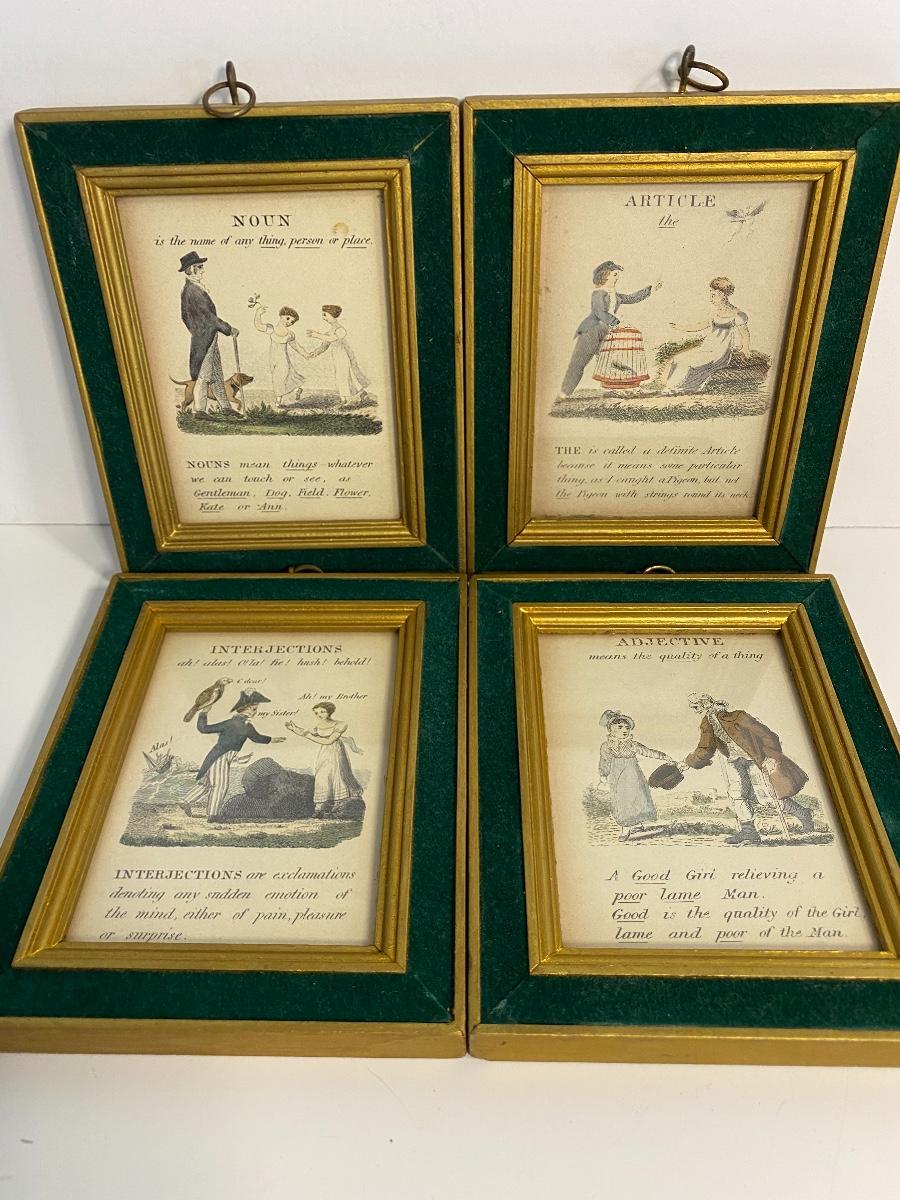 NOUN
is the name of any thing, person or place.
NOUNS mean things whatever
we can touch or see, as
Gentleman, Dog, Field, Flower,
Kate or Ann.
ARTICLE
the
THE is called a definite Article
because it means some particular
thing, as I caught a Pigeon, but not
the Pigeon with strings round its neck.
INTERJECTIONS
ah! alas! O la! fie! hush! behold!
O dear!
Ah! my Brother
my Sister!
Alas!
INTERJECTIONS are exclamations
denoting any sudden emotion of
the mind, either of pain, pleasure
or surprise.
ADJECTIVE
means the quality of a thing
A Good Girl relieving a
poor lame Man.
Good is the quality of the Girl,
lame and poor of the Man.